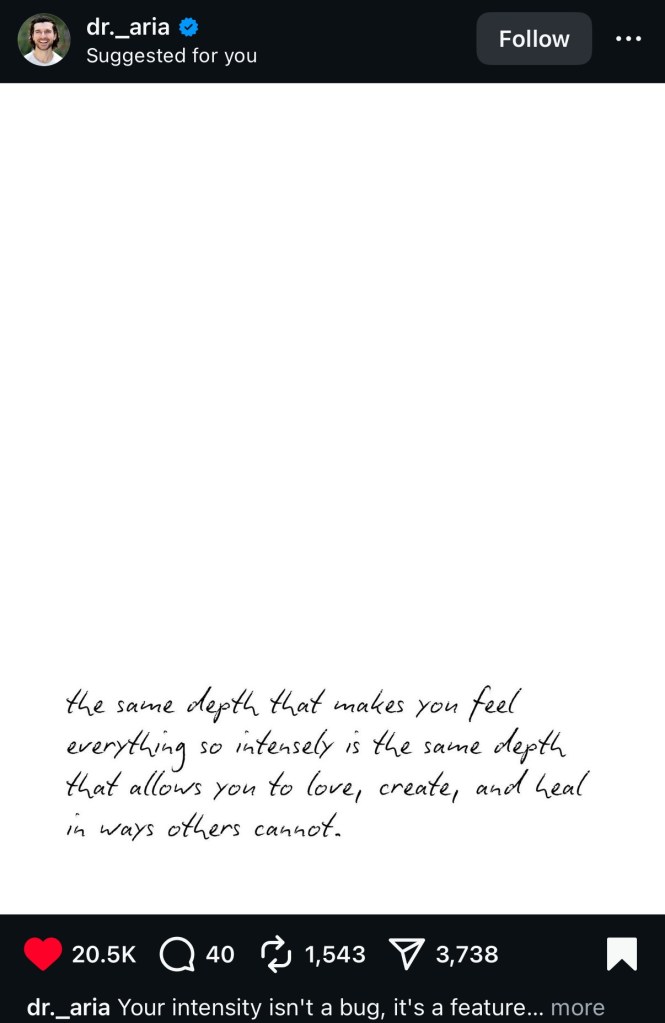 dr._aria
Suggested for you
Follow
the same depth that makes you feel
everything so intensely is the same depth
that allows you to love, create, and heal
in ways others cannot.
20.5K 40 1,543 3,738
dr._aria Your intensity isn't a bug, it's a feature... more